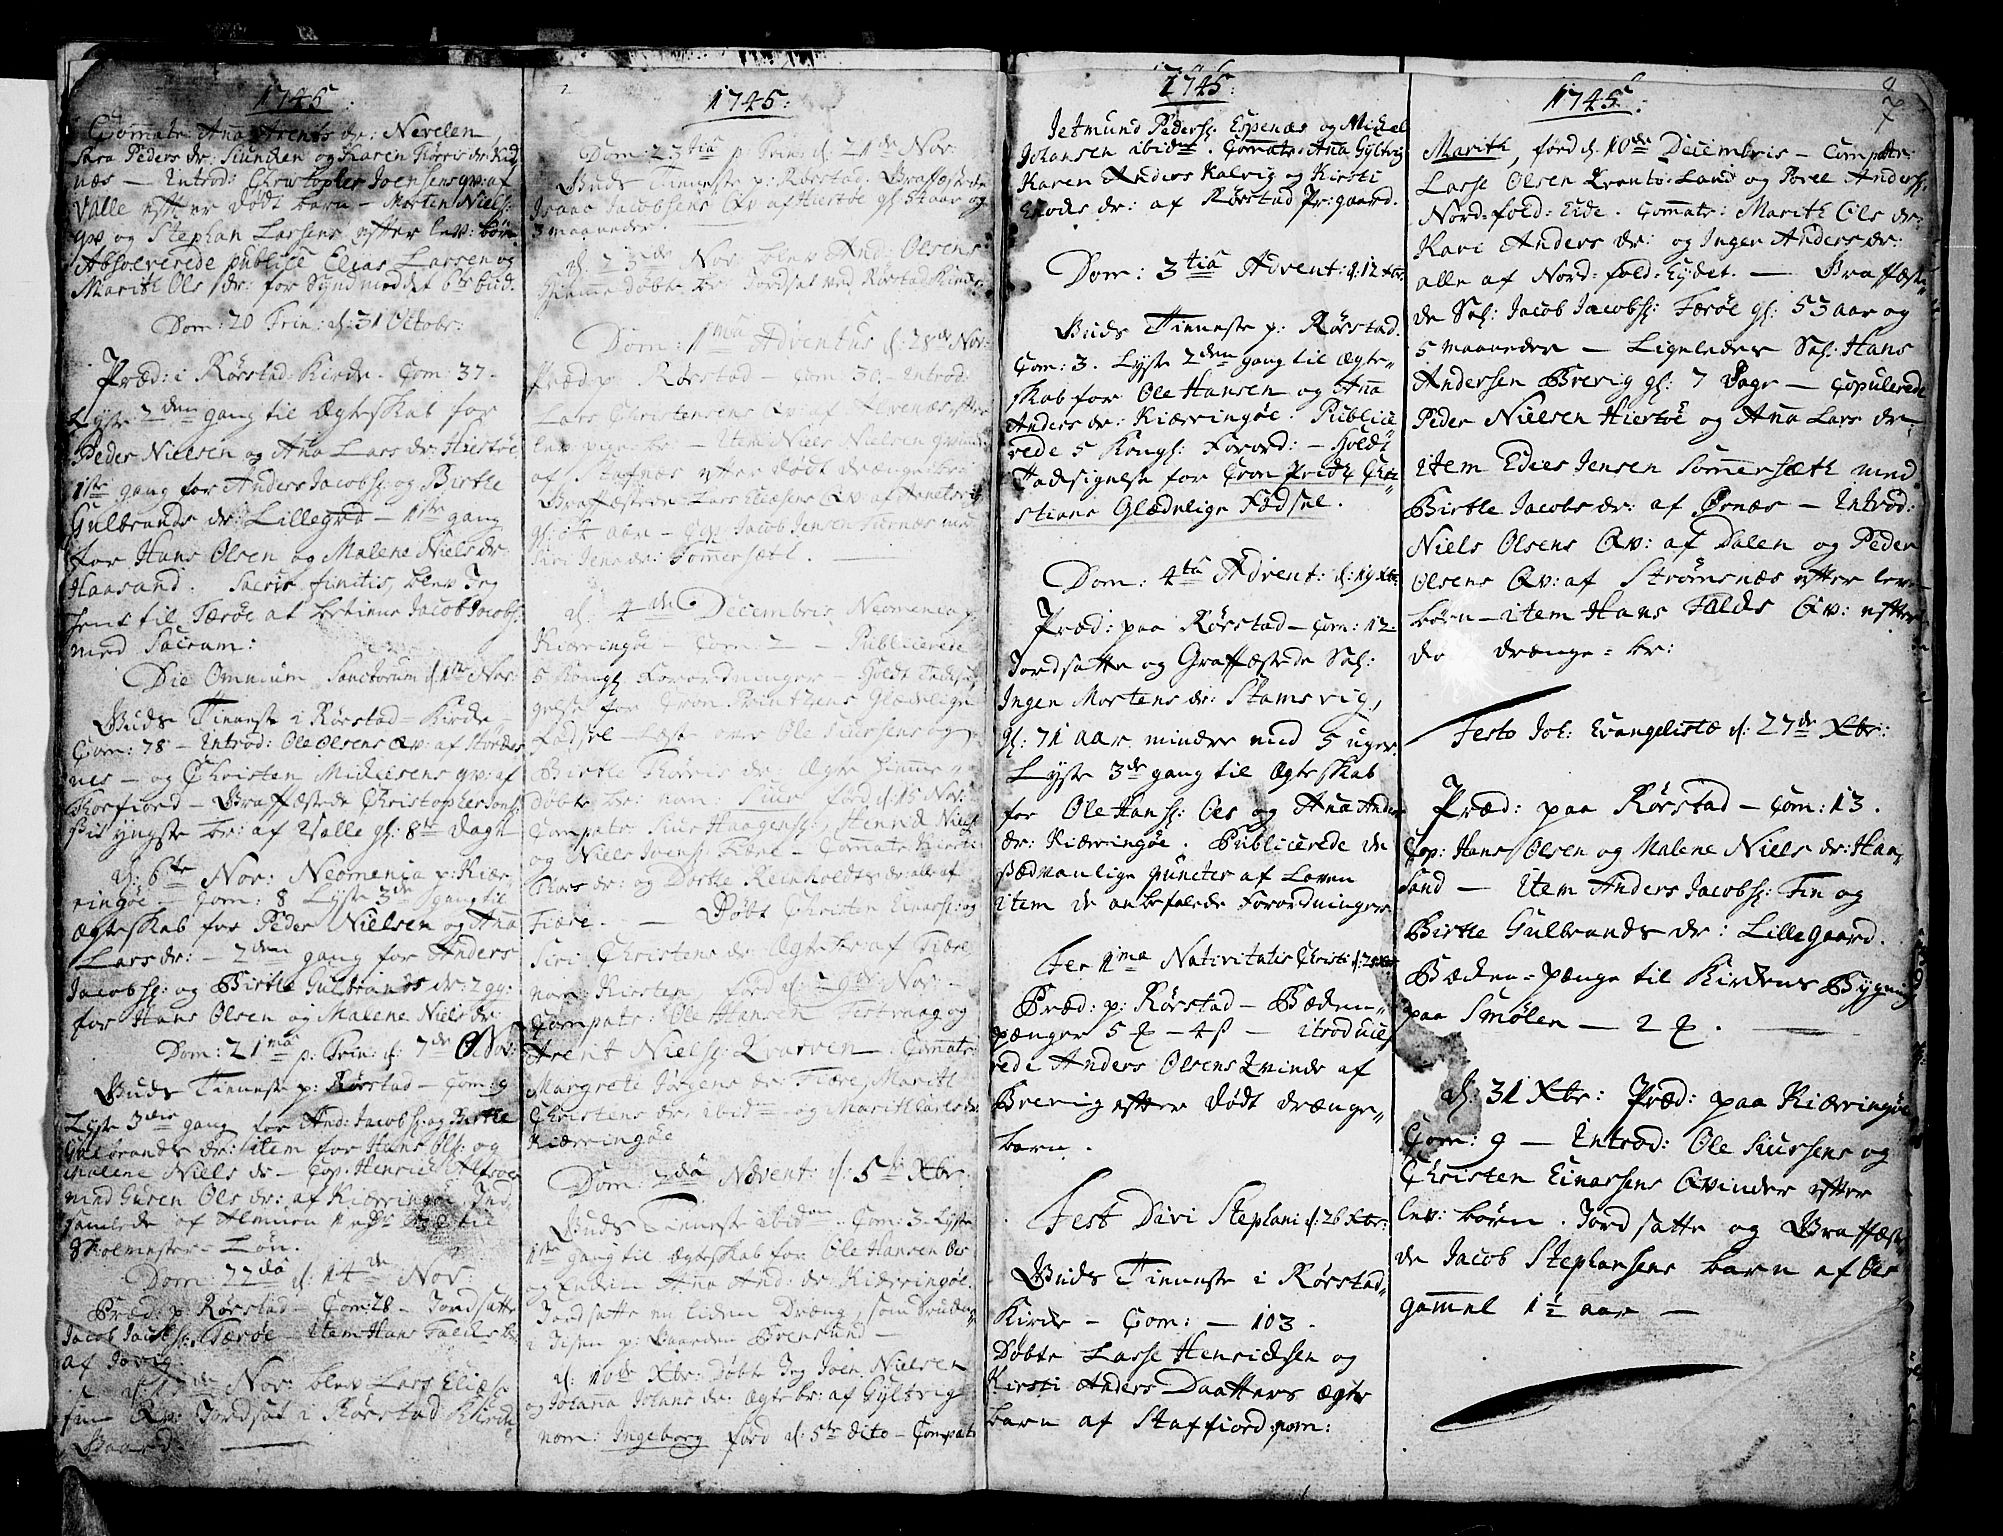 1745
Com̄atr: Aña Arents dr: Nevelen,
Sara Peders dr: Siunden og Karen Joris dr: Kid
næs — Introd: Christopher Joensens qv: af
Valle eft er dødt barn – Morten Niels:
qv og Stephan Larsens efter lev: børn
Absolverede publicè Elias Larsen og
Marith Ols dr: for Synd mod det 6te bud.
Dom: 20 Trin: d: 31 Octobr:
Præd: i Rørstad Kirke. Com: 37.
Lyste 2den gang til Ægteskab for
Peder Nielsen og Aña Lars dr: Hiertøe
1ste gang for Anders Jacobs: og Birthe
Gulbrands dr: Lillegrd – 1ste gang
for Hans Olsen og Malene Niels dr:
Haasand. Sacris finitis, blev Jeg
hent til Færøe at betiene Jacob Jacobs:
med Sacram:
Die Omnium Sanctorum d: 1te Nov:
Guds Tienneste i Rørstad Kirke –
Com: 78 – Introd: Ole Olsens Qv: af
nes – og Christen Mickelsens qv: af
Korfiord – Graffæstede Christophersens
yngste br: af Valle gl: 8te dagh
d: 6te Nov: Neomenia p: Kier
ringøe – Com: 8 Lyste 3die gang til
Ægteskab for Peder Nielsen og Aña
Lars dr: – 2den gang for Anders
Jacobs: og Birthe Gulbrands dr: 2 gg:
for Hans Olsen og Malene Niels dr:
Dom: 21ma p: Trin: d: 7de Nov:
Guds Tienneste p: Rørstad – Com: 9
Lyste 3die gang for And: Jacobs: og Birthe
Gulbrands dr: item for Hans Ols: og
Malene Niels dr – Cop: Henrich
med Guren Ols dr: af Kierringøe. Ind
samlede af Almuen til
Skolemester-Løn.
Dom: 22da d: 14de Nov:
Præd: p: Rørstad – Com: 28 – Jordsatte
Jacob Jacobs: Færøe – item Hans Falchs br:
af Jovig
d: Nov: blev Lars Elias:
sin Qv: Jordsat i Rørstad Kirche
Gaard
1745:
Dom: 23tia p: Trin: d: 21de Nov:
Guds Tienneste p: Rørstad. Graffæstede
Isaac Jacobsens Qv af Hiertøe gl: 5 aar og
3 maaneder.
d: 23de Nov blev And: Olsens
hiemme døbte br: Jordsat ved Rørstad Kirke
Dom: 1ma Adventus d: 28de Nov:
Præd: p: Rørstad Com: 30. Introd:
Lars Christensens Qv: af Alvenæs efter
lev pige br – Item Niels Nielsen qvinde
af Stafnæs efter dødt drænge brn
Graffæstede Lars Eliæsens Qv: af
gl: 64 aar – Cop: Jacob Jensen Furnæs med
Siri Jens dr: Sommersætt. —
d: 4de Decembris Neomenia p
Kierringøe – Com: 2 – Publicerede
5 Kongl: Forordninger – Holdt Tacksi
gelse for Cron Printzens Glædelige
Fødsel – Læste over Ole Siursens og
Birthe Thorris dr: Ægte hiemme
døbte br: nom: Siur fød d: 15 Nov:
Compatr: Siur Haagens: Henrich Niels:
og Niels Joens: Fiære – Com̄atr: Kirsti
Thors dr: og Dorthe Reinholdts dr: alle af
Fiære. — Døbt Christen Einars: og
Siri Christens dr: Ægte br: af Fiære
nom: Kirsten fød d: 29de Nov: –
Compatr: Ole Hansen Vestvaag og
Arent Niels: Kvarven – Com̄atr:
Margrete Jørgens dr: Fiære, Marith
Christens dr: ibidm og Marith Carls dr:
Kierringøe
Dom: 2da Advent: d: 5te Xbr:
Guds Tienneste ibidm. Com: 3. Lyste
1te gang til ægteskab for Ole Hansen Øes
og Enchen Aña And: dr: Kierringøe
Jordsatte en liden Dræng som druknet
i Isen p: Gaarden Brensund –
d: 10de Xbr: Døbte Jeg Joen Nielsen
og Johana Johans dr: Ægte br: af Gyltvig
nom: Ingeborg fød d: 5te dito – Compatr
1745
Jetmund Peders: Espenæs og Mickel
Johansen ibidm. Com̄atr: Aña Gyltvig
Karen Anders Kalvig og Kirsti
Enochs dr: af Rørstad Pr:gaard.
Dom: 3tia Advent: d: 12 Xbr:
Guds Tienneste p: Rørstad.
Com: 3. Lyste 2den gang til Ægte-
skab for Ole Hansen og Aña
Anders dr: Kierringøe. Publice
rede 5 Kongl: Forord: – Holdt
Tacksigelse for Cron Pridtz Chri-
stians Glædelige Fødsel.
Dom: 4ta Advent: d: 19 Xbr:
Præd: paa Rørstad – Com: 12 –
Jordsatte og Graffæstede Sal:
Ingen Mortens dr: Stamsvig,
gl: 71 aar mindre end 5 uger
Lyste 3de gang til Ægteskab
for Ole Hans: Øes og Aña Anders
dr: Kierringøe. Publicerede de
sædvanlige puncter af Loven
item de anbefalede Forordninger
Fer 1ma Nativitatis Christi d: 25 Xbr
Præd: p: Rørstad – Bæden-
pænger 5 ꝥ – 4 ß – itroduce
rede Anders Olsens Qvinde af
Brevig efter dødt drænge-
barn.
Fest Divi Stephani d: 26 Xbr:
Guds Tienneste i Rørstad
Kirke – Com: – 103.
Døbte Lasse Henricksen og
Kirsti Anders Daatters Ægte
barn af Staffiord nom:
1745:
Marith, fød d: 10de Decembris – Compatr:
Lasse Olsen Lund og Povel Anders:
Nord-fold: Eide. Com̄atr: Marith Ols dr:
Kari Anders dr: og Inger Anders dr:
alle af Nord-fold: Eydet. — Graffæste-
de Sal: Jacob Jacobs: Færøe gl: 53 aar og
5 maaneder – Ligeledes Sal: Hans
Andersen Brevig gl: 7 Dage – Copulerede
Peder Nielsen Hiertøe og Aña Lars dr –
item Edies Jensen Som̄ersæth med
Birthe Jacobs dr: af Ørnæs – Introd:
Niels Olsens Qv: af Dalen og Peder
Olsens Qv: af Strømsnæs efter lev
børn – item Hans Falchs Qv: efter
dø drænge = br:
Festo Joh: Evangelistæ d: 27de Xbr:
Præd: paa Rørstad – Com: 13.
Cop: Hans Olsen og Malene Niels dr: Haa-
sand – Item Anders Jacobs: Fin og
Birthe Gulbrands dr: Lillegaard.
Bæden-pænge til Kirkens Bygning
paa Smølen – 2 ꝥ. —
d: 31 Xbr: Præd: paa Kierringøe
Com: 9 – Introd: Ole Siursens og
Christen Einarsens Qvinder efter
lev: børn. Jordsatte og Graffæste
de Jacob Stephansens barn af Øes
gam̄el 1½ aar —